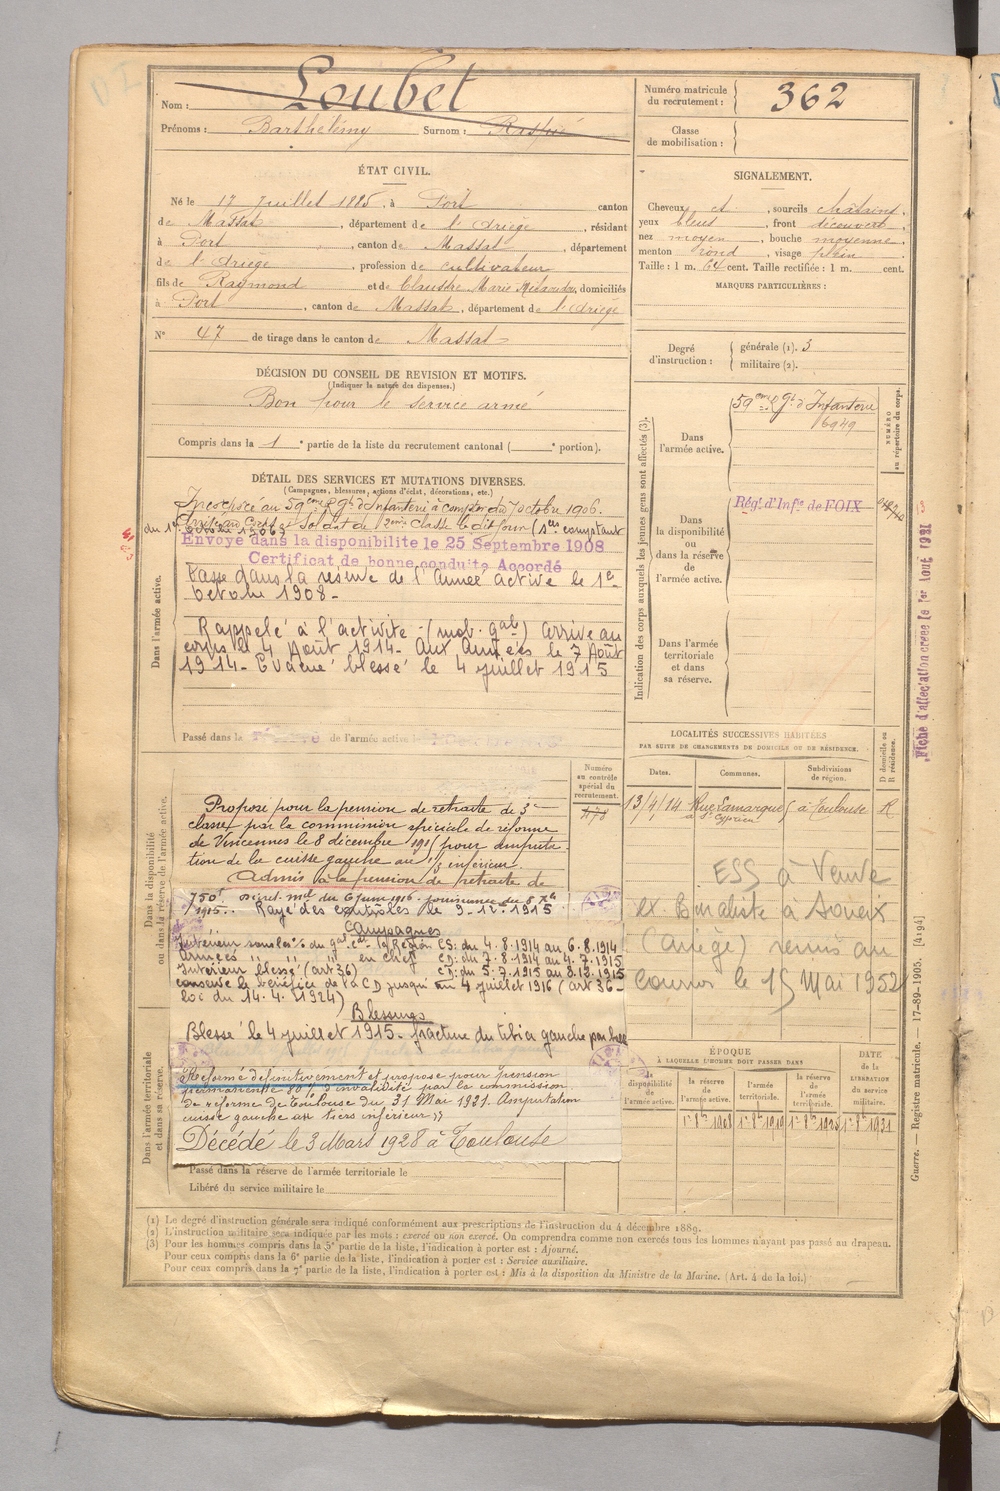 Nom : Loubet
Prénoms : Barthélémy Surnom :
Numéro matricule du recrutement : 362
Classe de mobilisation :
ÉTAT CIVIL.
Né le 17 Juillet 1885, à Port canton
de Massat, département de l'Ariège, résidant
à Port, canton de Massat, département
de l'Ariège, profession de cultivateur
fils de Raymond et de Claustre Marie, domiciliés
à Port, canton de Massat, département de l'Ariège
N° 47 de tirage dans le canton de Massat
SIGNALEMENT.
Cheveux et, sourcils châtains,
yeux bleus, front découvert,
nez moyen, bouche moyenne,
menton rond, visage plein
Taille : 1 m. 64 cent. Taille rectifiée : 1 m. cent.
MARQUES PARTICULIÈRES :
Degré d'instruction : générale (1). 3
militaire (2).
DÉCISION DU CONSEIL DE REVISION ET MOTIFS.
(Indiquer la nature des dispenses.)
Bon pour le service armé
Compris dans la 1e partie de la liste du recrutement cantonal ( e portion).
DÉTAIL DES SERVICES ET MUTATIONS DIVERSES.
(Campagnes, blessures, actions d'éclat, décorations, etc.)
Incorporé au 59eme Rgt d'Infanterie à compter du 7 octobre 1906.
Arrivé au Corps et soldat de 2eme classe le dit jour (sces comptant
du 1er octobre 1906)
Envoyé dans la disponibilite le 25 Septembre 1908
Certificat de bonne conduite Accordé
Passé dans la réserve de l'armée active le 1er
octobre 1908 -
Rappelé à l'activité (mob. gale) Arrivé au
corps le 4 Août 1914 - Aux Armées le 7 Août
1914 - Evacué blessé le 4 juillet 1915
Dans l'armée active.
Passé dans la réserve de l'armée active
Indication des corps auxquels les jeunes gens sont affectés (3).
Dans l'armée active.
59eme Rgt d'Infanterie
6949
NUMÉRO au répertoire du corps.
Dans la disponibilité ou dans la réserve de l'armée active.
Régt d'Infie de FOIX
Dans l'armée territoriale et dans sa réserve.
Fiche d'affectation créée le 1er Aout 1921
LOCALITÉS SUCCESSIVES HABITÉES
PAR SUITE DE CHANGEMENTS DE DOMICILE OU DE RÉSIDENCE.
D domicile ou R résidence.
Dates. Communes. Subdivisions de région.
13/4/14 Rue Lamarque 5 à Toulouse R
à St Cyprien
Numéro au contrôle spécial du recrutement.
Dans la disponibilité ou dans la réserve de l'armée active.
Proposé pour la pension de retraite de 3e
classe par la commission spéciale de réforme
de Vincennes le 8 décembre 1915 pour amputa-
tion de la cuisse gauche au 1/3 inférieur.
Admis à la pension de retraite de
750f Décret mel du 6 juin 1916. jouissance du 8 Xbre
1915. Rayé des contrôles le 9-12-1915
Campagnes
CS: du 4.8.1914 au 6.8.1914
Armées " " en chef CD: du 7.8.1914 au 4.7.1915
Intérieur blessé (art 36) CD: du 5.7.1915 au 8.12.1915
conserve le bénéfice de la CD jusqu'au 4 juillet 1916 (art 36-
loi du 14.4.1924)
Blessures
Blessé le 4 juillet 1915 - fracture du tibia gauche par balle
Réformé définitivement et proposé pour pension
permanente 80% d'invalidité par la commission
de réforme de Toulouse du 31 Mai 1921. Amputation
cuisse gauche au tiers inférieur »
Décédé le 3 Mars 1928 à Toulouse
ESS à Veuve
ex. Buraliste à Soueix
(Ariège) remis au
courrier le 15 Mai 1952
Dans l'armée territoriale et dans sa réserve.
Passé dans la réserve de l'armée territoriale le
Libéré du service militaire le
ÉPOQUE
À LAQUELLE L'HOMME DOIT PASSER DANS
DATE DE LA LIBÉRATION du service militaire.
disponibilité de l'armée active. la réserve de l'armée active. l'armée territoriale. la réserve de l'armée territoriale.
1er 8bre 1908 1er 8bre 1919 1er 8bre 1925 1er 8bre 1931
Guerre. — Registre matricule. — 17-89-1905. [4194]
(1) Le degré d'instruction générale sera indiqué conformément aux prescriptions de l'instruction du 4 décembre 1889.
(2) L'instruction militaire sera indiquée par les mots : exercé ou non exercé. On comprendra comme non exercés tous les hommes n'ayant pas passé au drapeau.
(3) Pour les hommes compris dans la 5e partie de la liste, l'indication à porter est : Ajourné.
Pour ceux compris dans la 6e partie de la liste, l'indication à porter est : Service auxiliaire.
Pour ceux compris dans la 7e partie de la liste, l'indication à porter est : Mis à la disposition du Ministre de la Marine. (Art. 4 de la loi.)